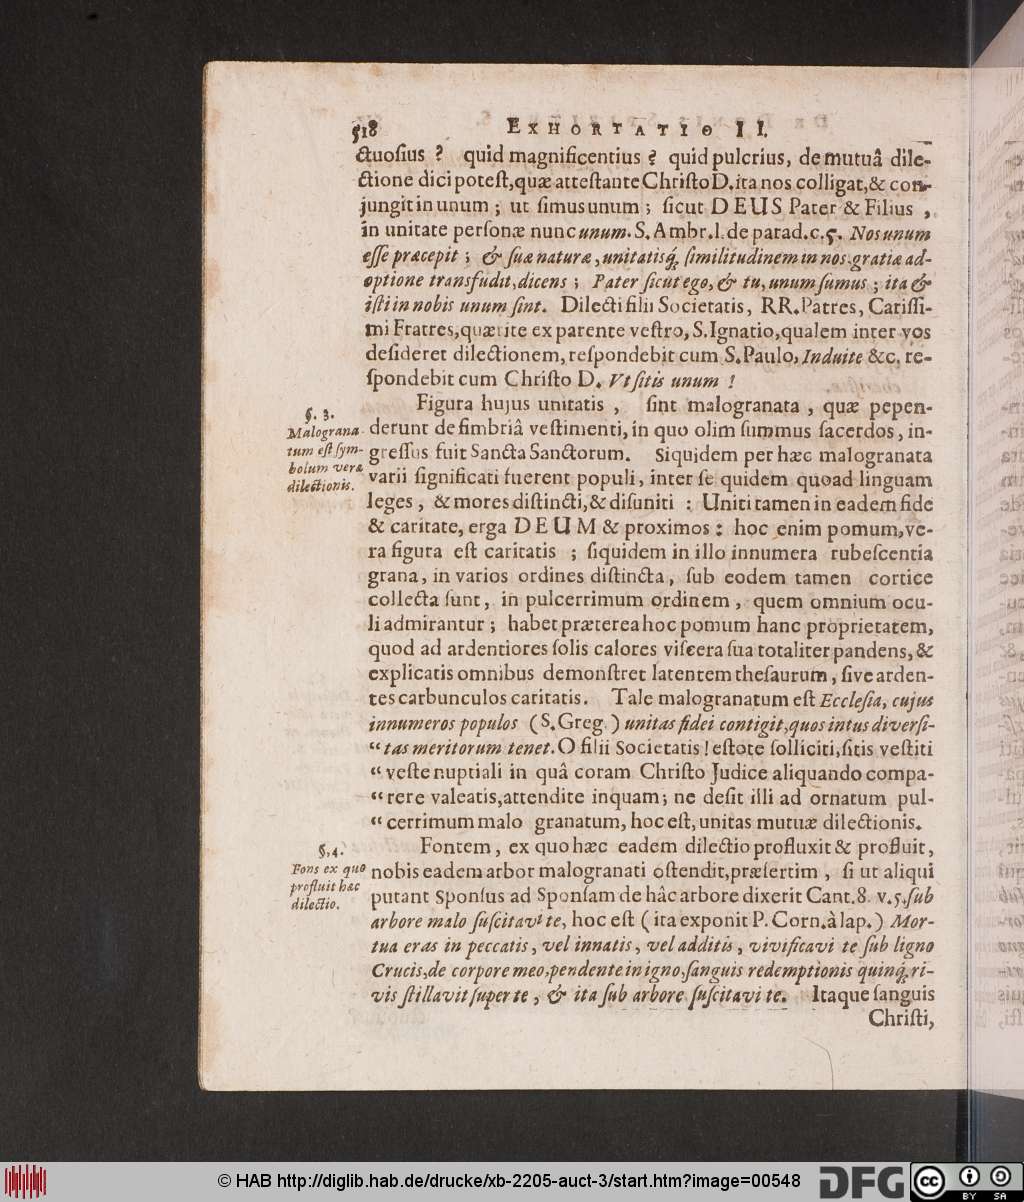 518 EXHORTATIO II.
ctuosius ? quid magnificentius ? quid pulcrius, de mutuâ dile-
ctione dici potest, quæ attestante Christo D. ita nos colligat, & con-
jungit in unum ; ut simus unum ; sicut DEUS Pater & Filius ,
in unitate personæ nunc unum. S. Ambr. l. de parad. c. 5. Nos unum
esse præcepit ; & suæ naturæ, unitatisq́; similitudinem in nos gratiæ ad-
optione transfudit, dicens ; Pater sicut ego, & tu, unum sumus ; ita &
isti in nobis unum sint. Dilecti filii Societatis, RR. Patres, Carissi-
mi Fratres, quærite ex parente vestro, S. Ignatio, qualem inter vos
desideret dilectionem, respondebit cum S. Paulo, Induite &c. re-
spondebit cum Christo D. Vt sitis unum !
§. 3.
Malograna-
tum est sym-
bolum veræ
dilectionis.
Figura hujus unitatis , sint malogranata , quæ pepen-
derunt de fimbriâ vestimenti, in quo olim summus sacerdos, in-
gressus fuit Sancta Sanctorum. Siquidem per hæc malogranata
varii significati fuerent populi, inter se quidem quoad linguam
leges , & mores distincti, & disuniti : Uniti tamen in eadem fide
& caritate, erga DEUM & proximos : hoc enim pomum, ve-
ra figura est caritatis ; siquidem in illo innumera rubescentia
grana, in varios ordines distincta, sub eodem tamen cortice
collecta sunt, in pulcerrimum ordinem , quem omnium ocu-
li admirantur ; habet præterea hoc pomum hanc proprietatem,
quod ad ardentiores solis calores viscera sua totaliter pandens, &
explicatis omnibus demonstret latentem thesaurum, sive arden-
tes carbunculos caritatis. Tale malogranatum est Ecclesia, cujus
innumeros populos (S. Greg.) unitas fidei contigit, quos intus diversi-
“ tas meritorum tenet. O filii Societatis ! estote solliciti, sitis vestiti
“ veste nuptiali in quâ coram Christo Judice aliquando compa-
“ rere valeatis, attendite inquam ; ne desit illi ad ornatum pul-
“ cerrimum malo granatum, hoc est, unitas mutuæ dilectionis.
§. 4.
Fons ex quo
profluit hæc
dilectio.
Fontem , ex quo hæc eadem dilectio profluxit & profluit,
nobis eadem arbor malogranati ostendit, præsertim , si ut aliqui
putant Sponsus ad Sponsam de hâc arbore dixerit Cant. 8. v. 5. sub
arbore malo suscitavi te, hoc est ( ita exponit P. Corn. à lap. ) Mor-
tua eras in peccatis , vel innatis , vel additis , vivificavi te sub ligno
Crucis, de corpore meo, pendente in igno, sanguis redemptionis quinq́; ri-
vis stillavit super te , & ita sub arbore suscitavi te. Itaque sanguis
Christi,
© HAB http://diglib.hab.de/drucke/xb-2205-auct-3/start.htm?image=00548 DFG CC BY SA